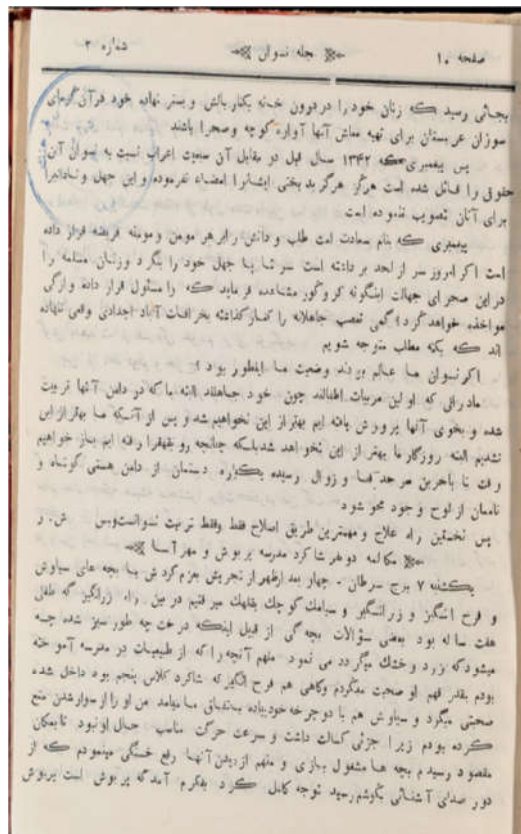 صفحه ۱۰
مجله نسوان
شماره ۲
بجائی رسید که زنان خود را در درون خانه بکنار بالش و بستر نهاده خود در آن گرمای
سوزان عربستان برای تهیه معاش آنها آواره کوچه و صحرا باشند
پس پیغمبری که ۱۳۴۲ سال قبل در مقابل آن سبعیت اعراب نسبت به نسوان آن
حقوق را قائل شده است هرگز هرگز بدبختی ایشانرا امضاء نفرموده و این جهل و نادانیرا
برای آنان تصویب ننموده است
پیغمبری که بنام سعادت امت طلب و دانش را بر هر مومن و مومنه فریضه قرار داده
است اگر امروز سر از لحد برداشته است سر تا پا جهل خود را بنگرد و زنان مسلمه را
در این صحرای جهالت اینگونه کر و کور مشاهده فرماید که را مسئول قرار داده و از کی
مواخذه خواهد کرد؟ کمی تعصب جاهلانه را کنار گذاشته بخرافات آباد اجدادی وقعی ننهاده
اند که بکنه مطلب متوجه شویم
اگر نسوان ما عالم بودند وضعیت ما اینطور بود؟
مادرانی که اولین مربیات اطفالند چون خود جاهلند البته ما که در دامن آنها تربیت
شده و بخوی آنها پرورش یافته ایم بهتر از این نخواهیم شد و پس از آنیکه ما بهتر از این
نشدیم البته روزگار ما بهتر از این نخواهد شد بلکه چنانچه رو بقهقرا رفته ایم باز خواهیم
رفت تا بآخرین سرحد فنا و زوال رسیده یکباره دستمان از دامن هستی کوتاه و
ناممان از لوح وجود محو شود
پس نخستین راه علاج و مهمترین طریق اصلاح فقط و فقط تربیت نسوانست و بس ش. ر
مکالمه دو نفر شاگرد مدرسه پریوش و مهرآسا
یکشنبه ۷ برج سرطان - چهار بعد از ظهر از تجریش بعزم گردش با بچه های سیاوش
و فرح انگیز و زر انگیز و سیامک کوچک بقلهک میرفتیم در بین راه زر انگیز که طفل
هفت ساله بود بعضی سؤالات بچه گی از قبیل اینکه درخت چه طور سبز شده چسه
میشود که زرد و خشک میگردد می نمود منهم آنچه را که از طبیعیات در مدرسه آموخته
بودم بقدر فهم او صحبت میکردم و گاهی هم فرح انگیز که شاگرد کلاس پنجم بود داخل شده
صحبتی میکرد و سیاوش هم با دوچرخه خود پیاده میامد من او را از سوار شدن منع
کرده بودم زیرا جزئی کسالت داشت و سرعت حرکت مناسب حال او نبود تا بمکان
مقصود رسیدم بچه ها مشغول بازی و منهم از دیدن آنها رفع خستگی مینمودم که از
دور صدای آشنائی بگوشم رسید توجه کامل کرده بفکرم آمد که پریوش است پریوش